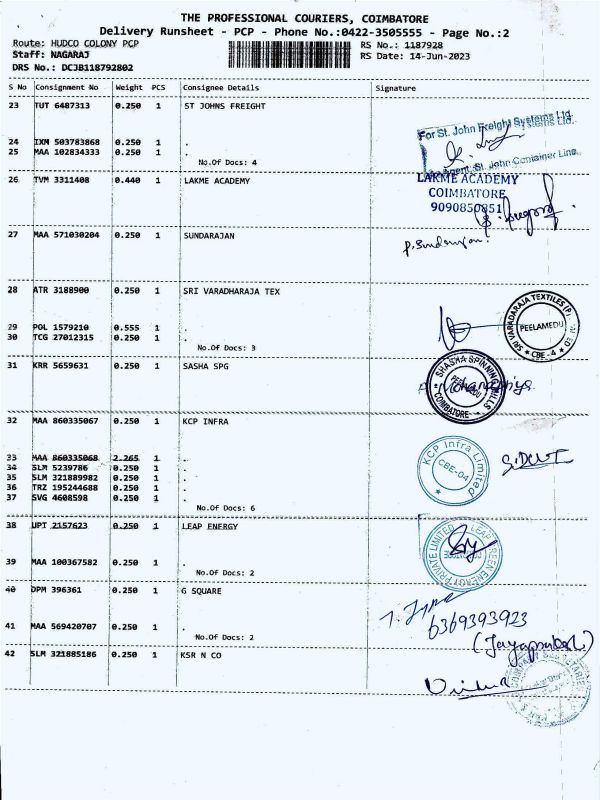 THE PROFESSIONAL COURIERS, COIMBATORE
Delivery Runsheet - PCP - Phone No.:0422-3505555 - Page No.:2
Route: HUDCO COLONY PCP RS No.: 1187928
Staff: NAGARAJ RS Date: 14-Jun-2023
DRS No.: DCJB118792802
S No Consignment No Weight PCS Consignee Details Signature
23 TUT 6487313 0.250 1 ST JOHNS FREIGHT
For St. John Freight Systems Ltd.
24 IXM 503783868 0.250 1 .
25 MAA 102834333 0.250 1 .
No.Of Docs: 4
Agent, St. John Container Line.
26 TVM 3311408 0.440 1 LAKME ACADEMY
LAKME ACADEMY
COIMBATORE
9090850851
27 MAA 571030204 0.250 1 SUNDARAJAN
P. Sundarajan
28 ATR 3188900 0.250 1 SRI VARADHARAJA TEX
SRI VARADARAJA TEXTILES (P)
PEELAMEDU
CBE - 4
29 POL 1579210 0.555 1 .
30 TCG 27012315 0.250 1 .
No.Of Docs: 3
31 KRR 5659631 0.250 1 SASHA SPG
SHASHA SPINNING MILLS
COIMBATORE
32 MAA 860335067 0.250 1 KCP INFRA
KCP Infra Limited
CBE-04
33 MAA 860335068 2.265 1 .
34 SLM 5239786 0.250 1 .
35 SLM 321889982 0.250 1 .
36 TRZ 195244688 0.250 1 .
37 SVG 4608598 0.250 1 .
No.Of Docs: 6
38 UPT 2157623 0.250 1 LEAP ENERGY
LEAP GREEN ENERGY PRIVATE LIMITED
39 MAA 100367582 0.250 1 .
No.Of Docs: 2
40 DPM 396361 0.250 1 G SQUARE
6369393923
41 MAA 569420707 0.250 1 .
No.Of Docs: 2
42 SLM 321885186 0.250 1 KSR N CO